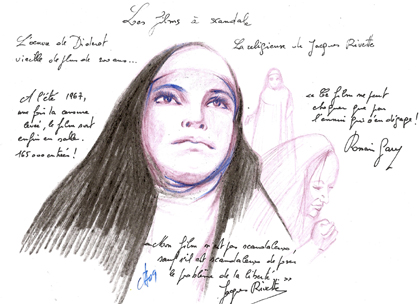 Les films à scandale
L'oeuvre de Diderot
vieille de plus de 200 ans...
La religieuse de Jacques Rivette
A l'été 1967,
une fois la censure
levée, le film sort
enfin en salle.
165 000 entrées !
ce film ne peut
choquer que par
l'ennui qui s'en dégage !
Romain Gary
"Mon film n'est pas scandaleux,
sauf s'il est scandaleux de poser
le problème de la liberté... "
Jacques Rivette